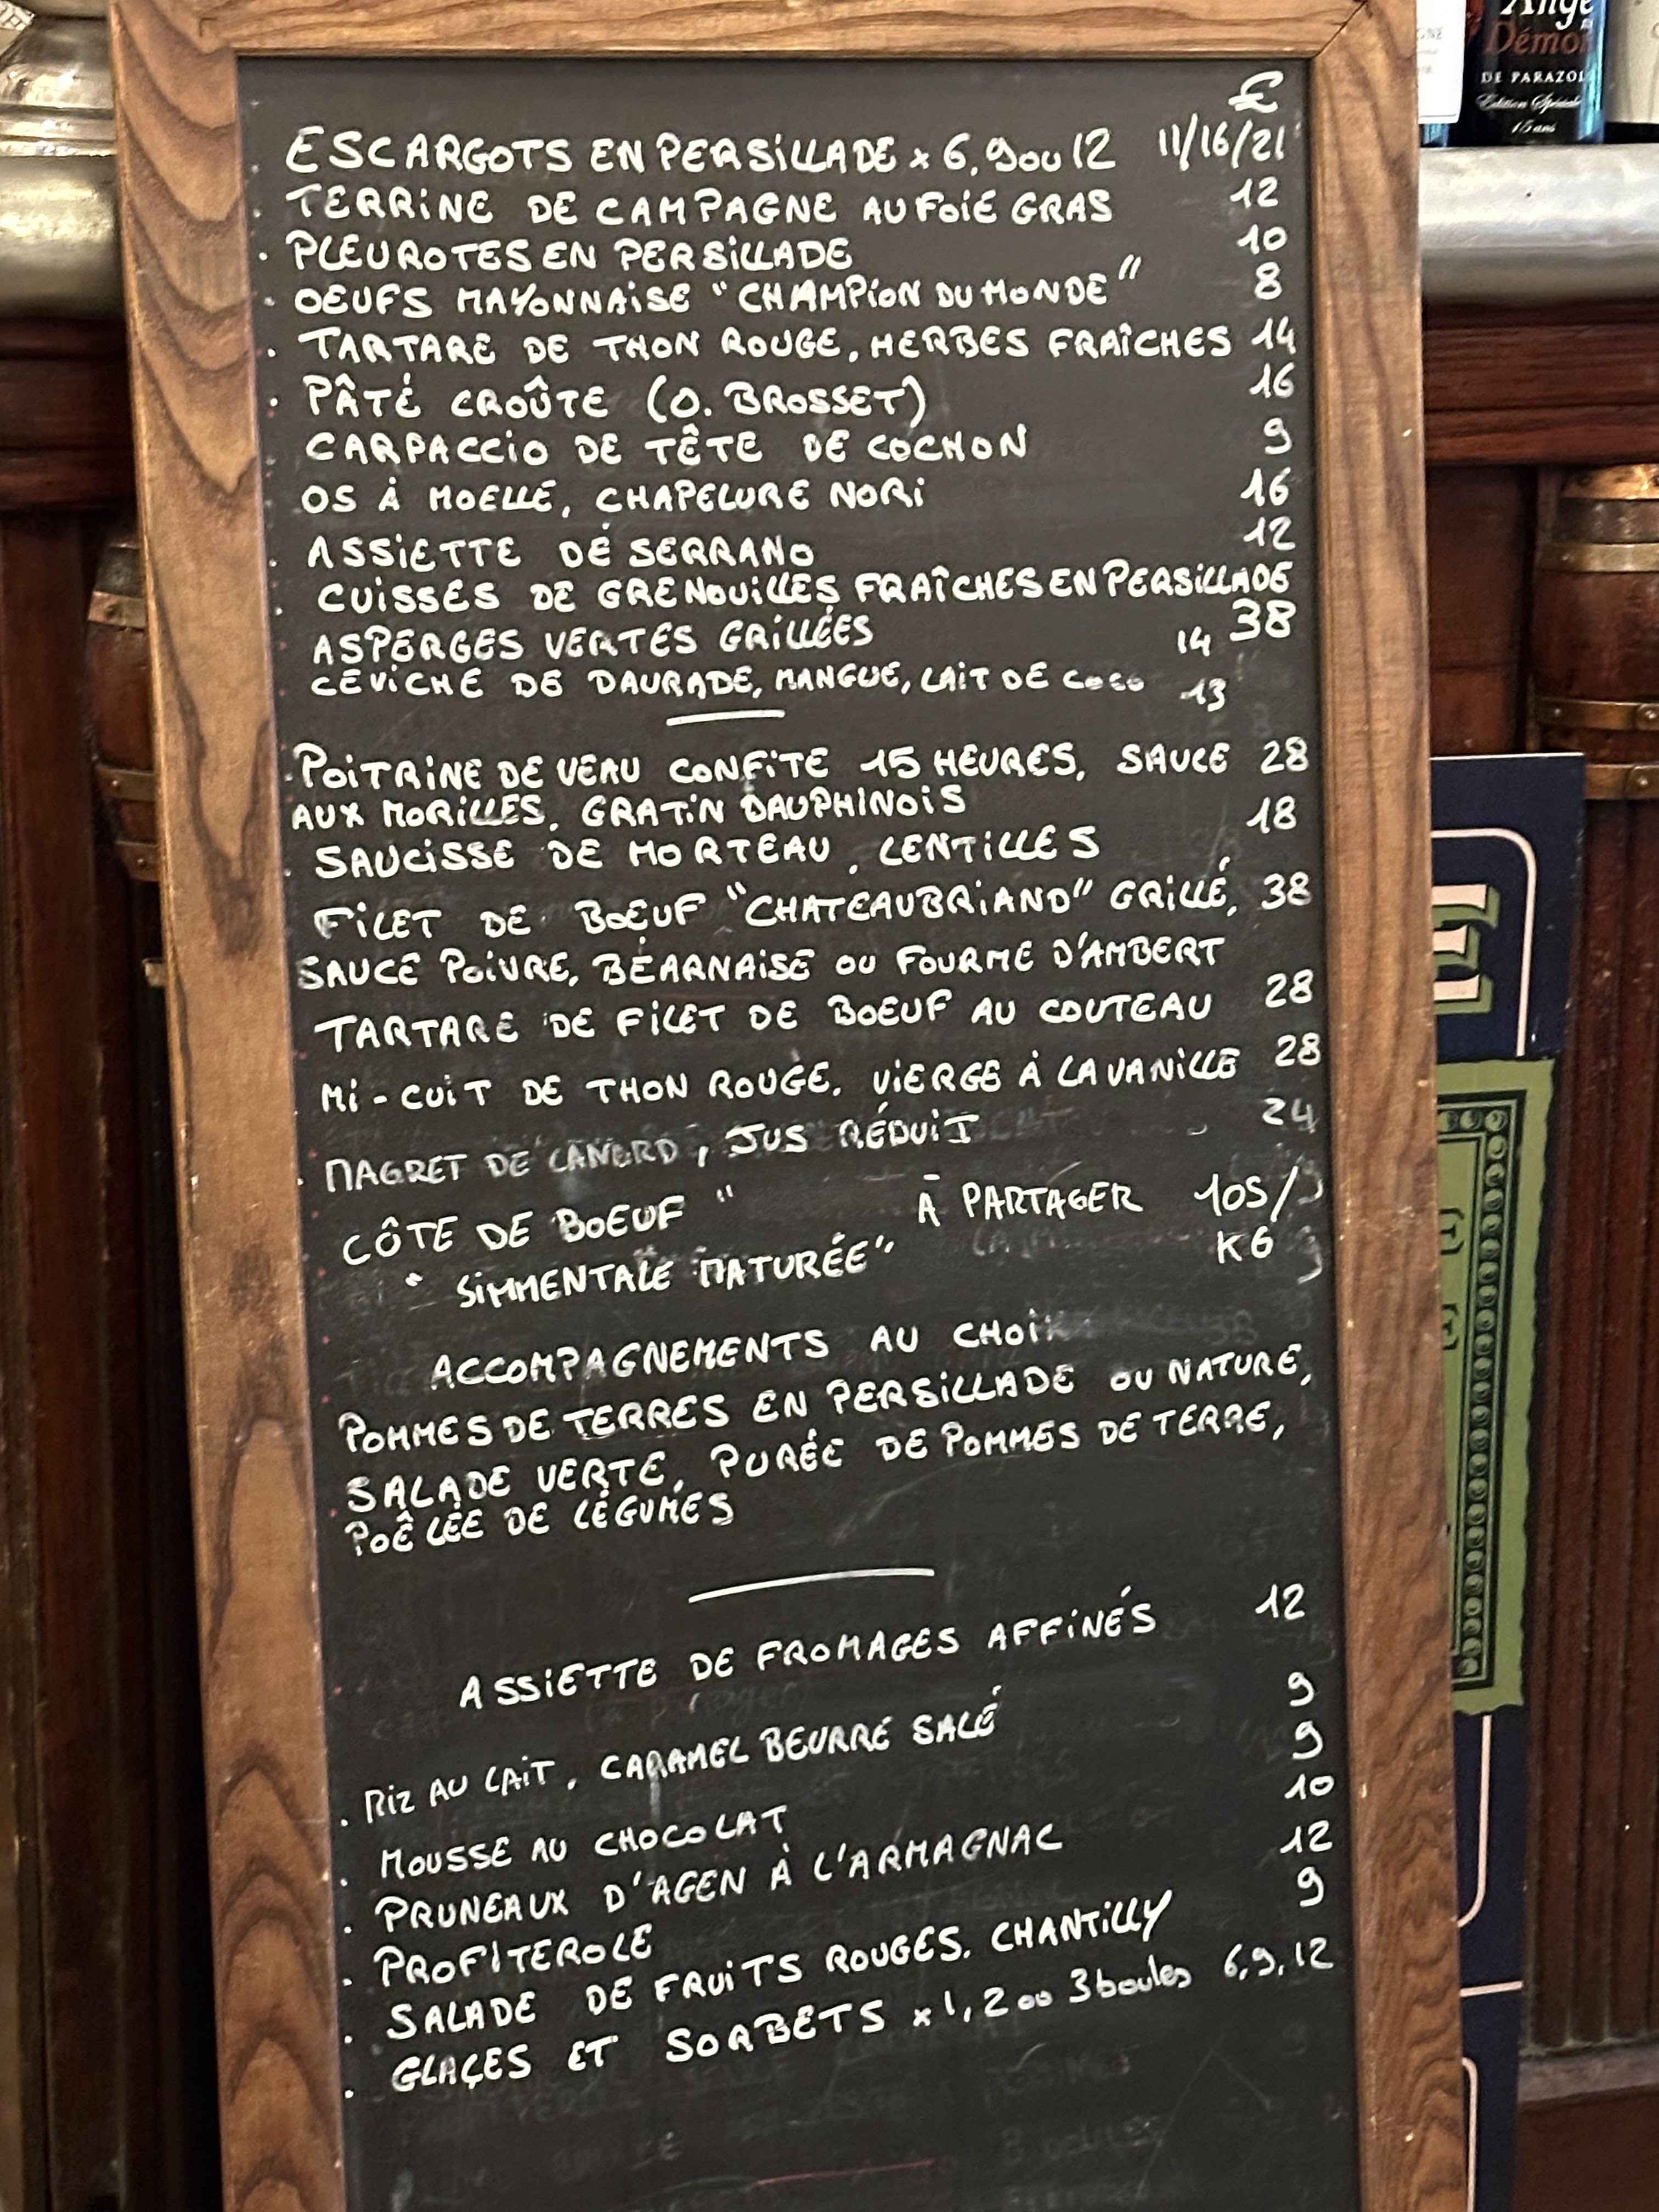 €
ESCARGOTS EN PERSILLADE x 6, 9 ou 12 11/16/21
TERRINE DE CAMPAGNE AU FOIE GRAS 12
PLEUROTES EN PERSILLADE 10
OEUFS MAYONNAISE "CHAMPION DU MONDE" 8
TARTARE DE THON ROUGE, HERBES FRAÎCHES 14
PÂTÉ CROÛTE (O. BROSSET) 16
CARPACCIO DE TÊTE DE COCHON 9
OS À MOELLE, CHAPELURE NORI 16
ASSIETTE DE SERRANO 12
CUISSES DE GRENOUILLES FRAÎCHES EN PERSILLADE
38
ASPERGES VERTES GRILLÉES 14
CEVICHE DE DAURADE, MANGUE, LAIT DE COCO 13
POITRINE DE VEAU CONFITE 15 HEURES, SAUCE 28
AUX MORILLES, GRATIN DAUPHINOIS
SAUCISSE DE MORTEAU, LENTILLES 18
FILET DE BOEUF "CHATEAUBRIAND" GRILLÉ, 38
SAUCE POIVRE, BÉARNAISE OU FOURME D'AMBERT
TARTARE DE FILET DE BOEUF AU COUTEAU 28
MI-CUIT DE THON ROUGE, VIERGE À LA VANILLE 28
MAGRET DE CANARD, JUS RÉDUIT 24
CÔTE DE BOEUF " À PARTAGER 105/
" SIMMENTALE MATURÉE" KG
ACCOMPAGNEMENTS AU CHOIX
POMMES DE TERRES EN PERSILLADE OU NATURE,
SALADE VERTE, PURÉE DE POMMES DE TERRE,
POÊLÉE DE LÉGUMES
ASSIETTE DE FROMAGES AFFINÉS 12
RIZ AU LAIT, CARAMEL BEURRE SALÉ 9
MOUSSE AU CHOCOLAT 9
PRUNEAUX D'AGEN À L'ARMAGNAC 10
PROFITEROLE 12
SALADE DE FRUITS ROUGES, CHANTILLY 9
GLAÇES ET SORBETS x 1, 2 ou 3 boules 6,9,12
Ange
Démon
DE PARAZOL
Edition Spéciale
15 ans